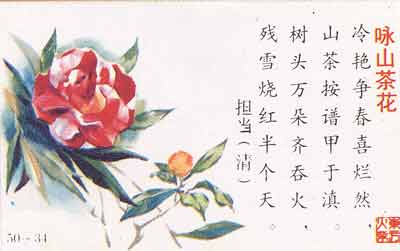 咏山茶花
冷艳争春喜烂然，
山茶按谱甲于滇。
树头万朵齐吞火，
残雪烧红半个天。
担当（清）
50-34